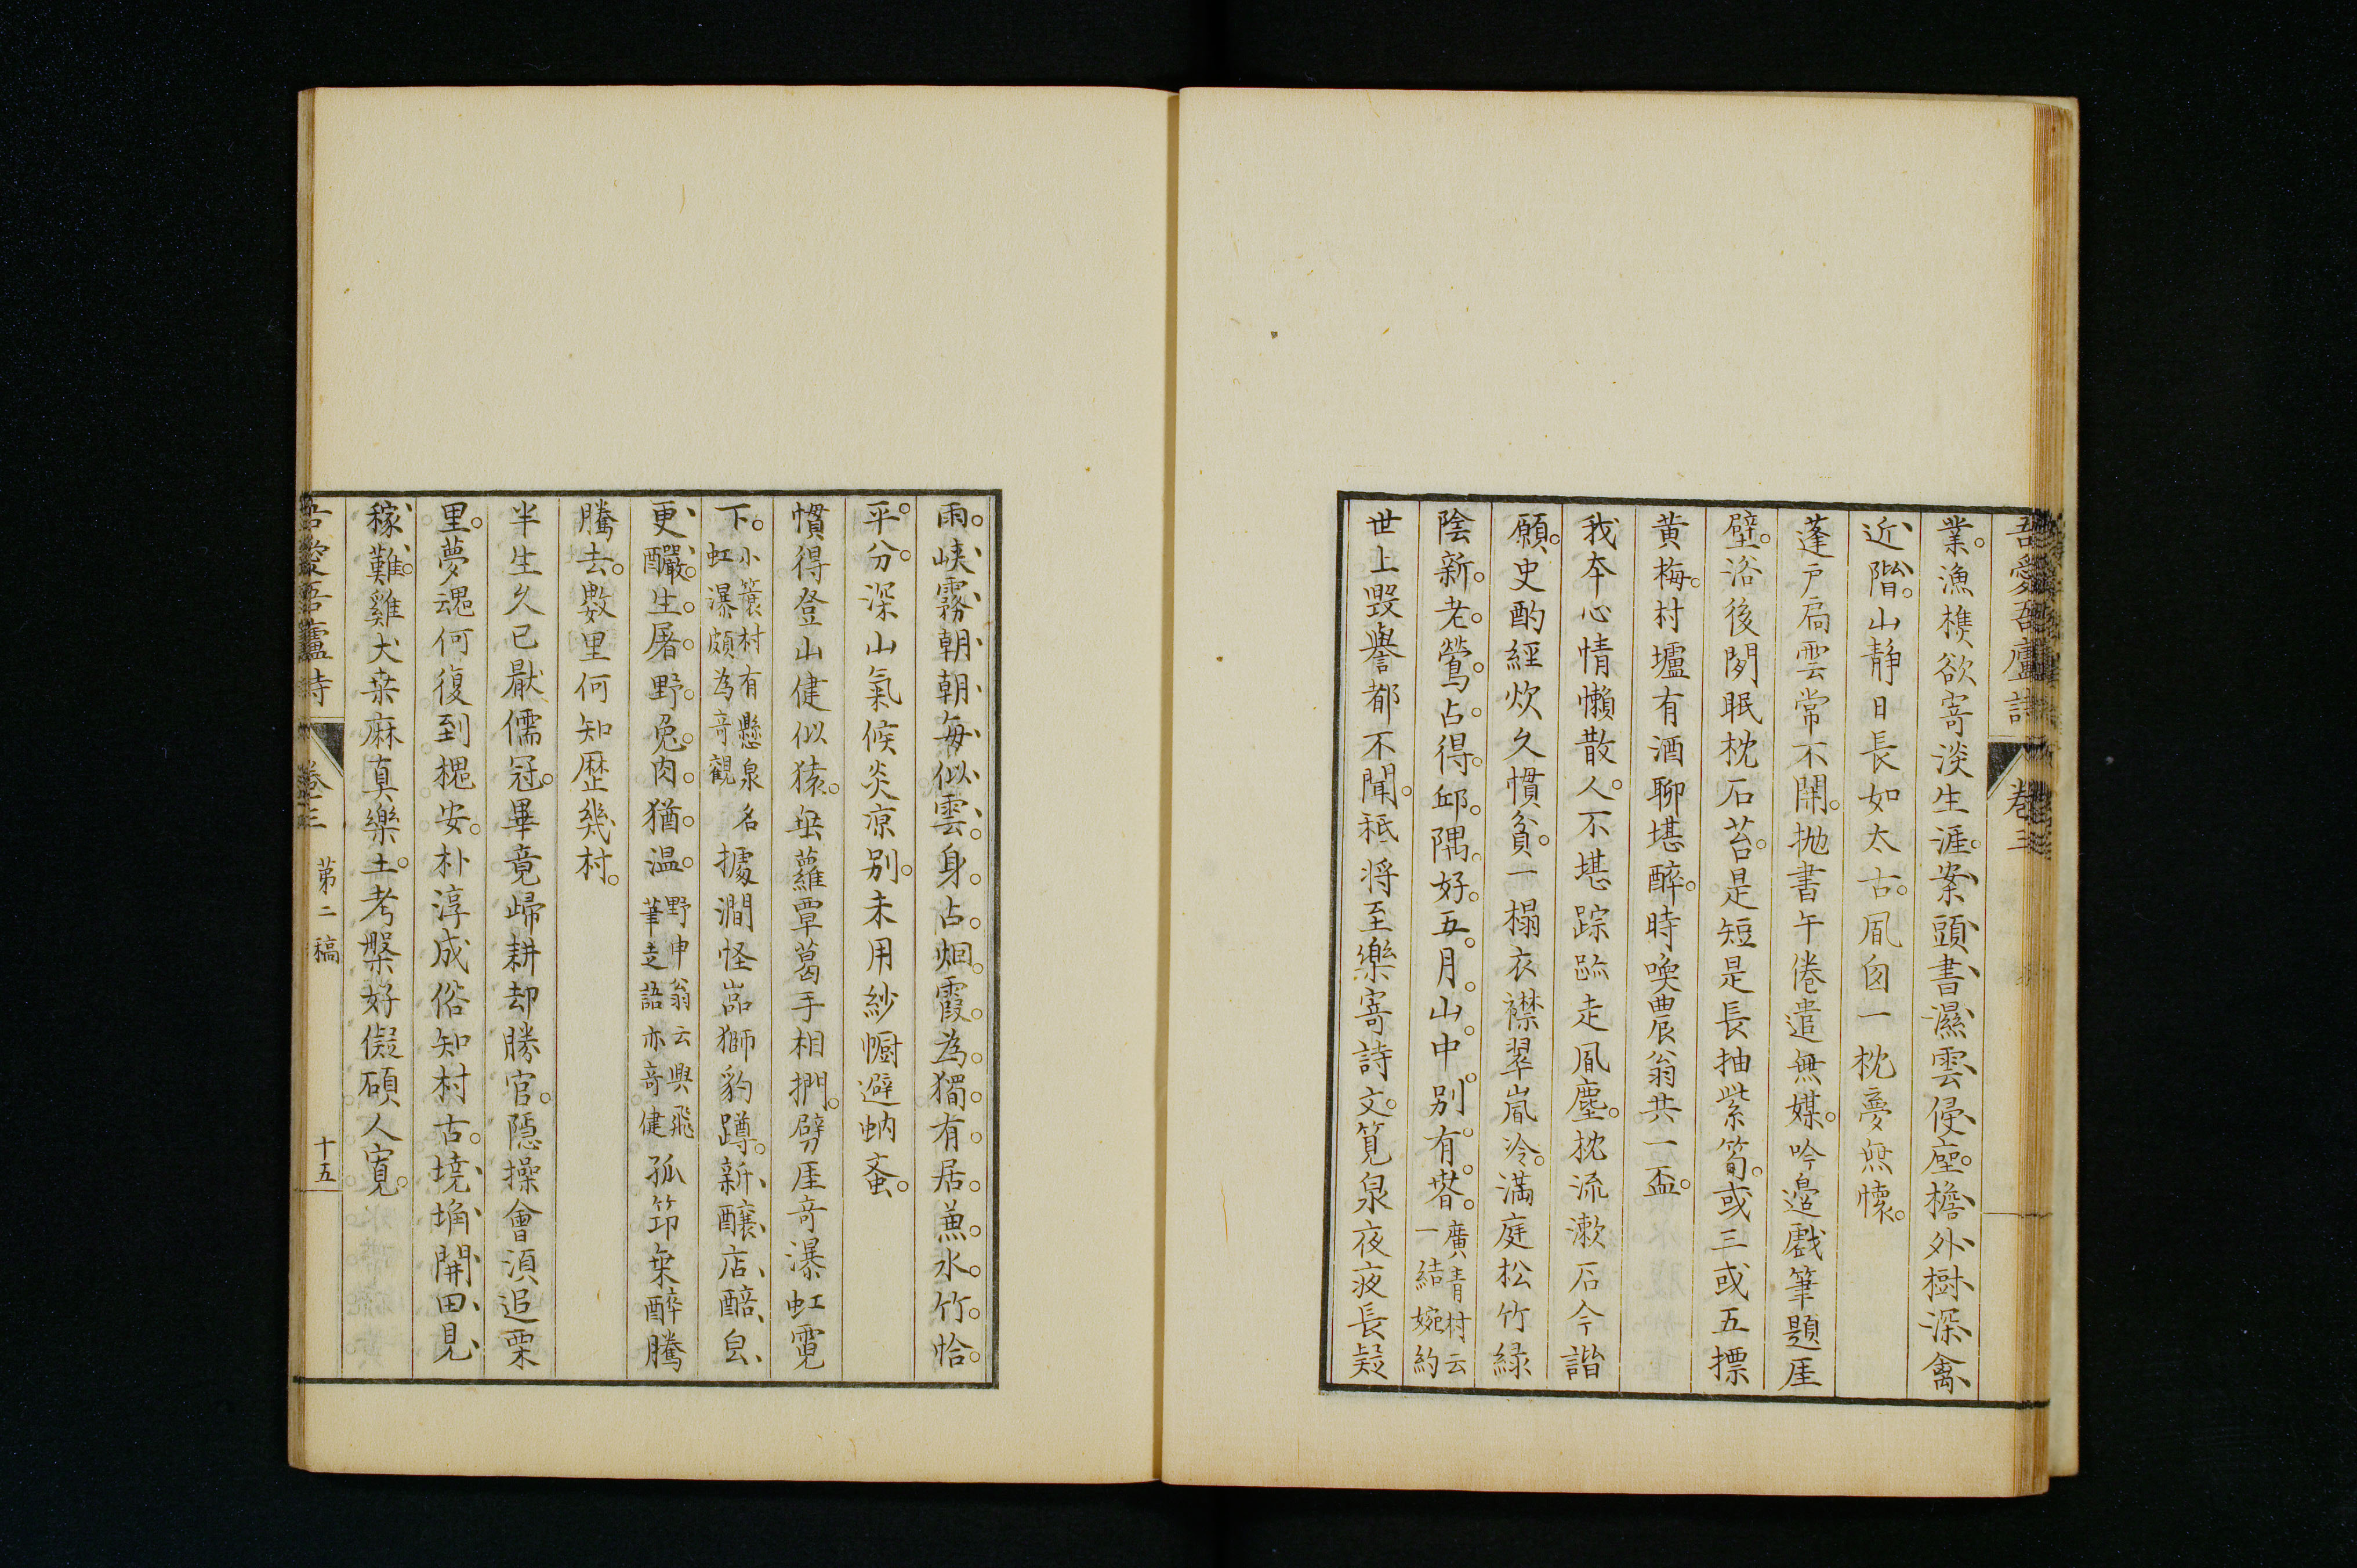 吾愛吾廬詩 卷三
業。漁樵欲寄淡生涯。案頭書濕雲侵座。檐外樹深禽
近階。山静日長如太古。凮囱一枕夢無懷。
蓬戶扃雲常不開。抛書午倦遣無媒。吟邉戲筆題厓
壁。浴後閒眠枕石苔。是短是長抽紫筍。或三或五摽
黄梅。村壚有酒聊堪醉。時喚農翁共一盃。
我本心情懶散人。不堪踪跡走凮塵。枕流漱石今諧
願。史酌經炊久慣貧。一榻衣襟翠嵐冷。滿庭松竹緑
陰新。老鶯占得邱隅好。五月山中別有春。廣青村云
一結婉約
世上毀譽都不聞。秖将至樂寄詩文。筧泉夜夜長疑
雨。峡霧朝朝每似雲。身占烟霞為獨有。居兼水竹恰
平分。深山氣候炎凉別。未用紗㡡避蚋蚉。
慣得登山健似猿。垂蘿覃葛手相捫。劈厓竒瀑虹霓
下。小簑村有懸泉名
虹瀑頗為竒觀
據澗怪嵒獅豹蹲。新釀店醅皃
更釅。生屠野兔肉猶温。野申翁云興飛
筆走語亦竒健
孤筇乗醉騰
騰去。數里何知歴幾村。
半生久已厭儒冠。畢竟歸耕却勝官。隠操會湏追栗
里。夢魂何復到槐安。朴淳成俗知村古。墝埆開田見
稼難。雞犬桒麻真樂土。考槃好儗碩人寛。
吾愛吾廬詩 卷三 苐二稿 十五